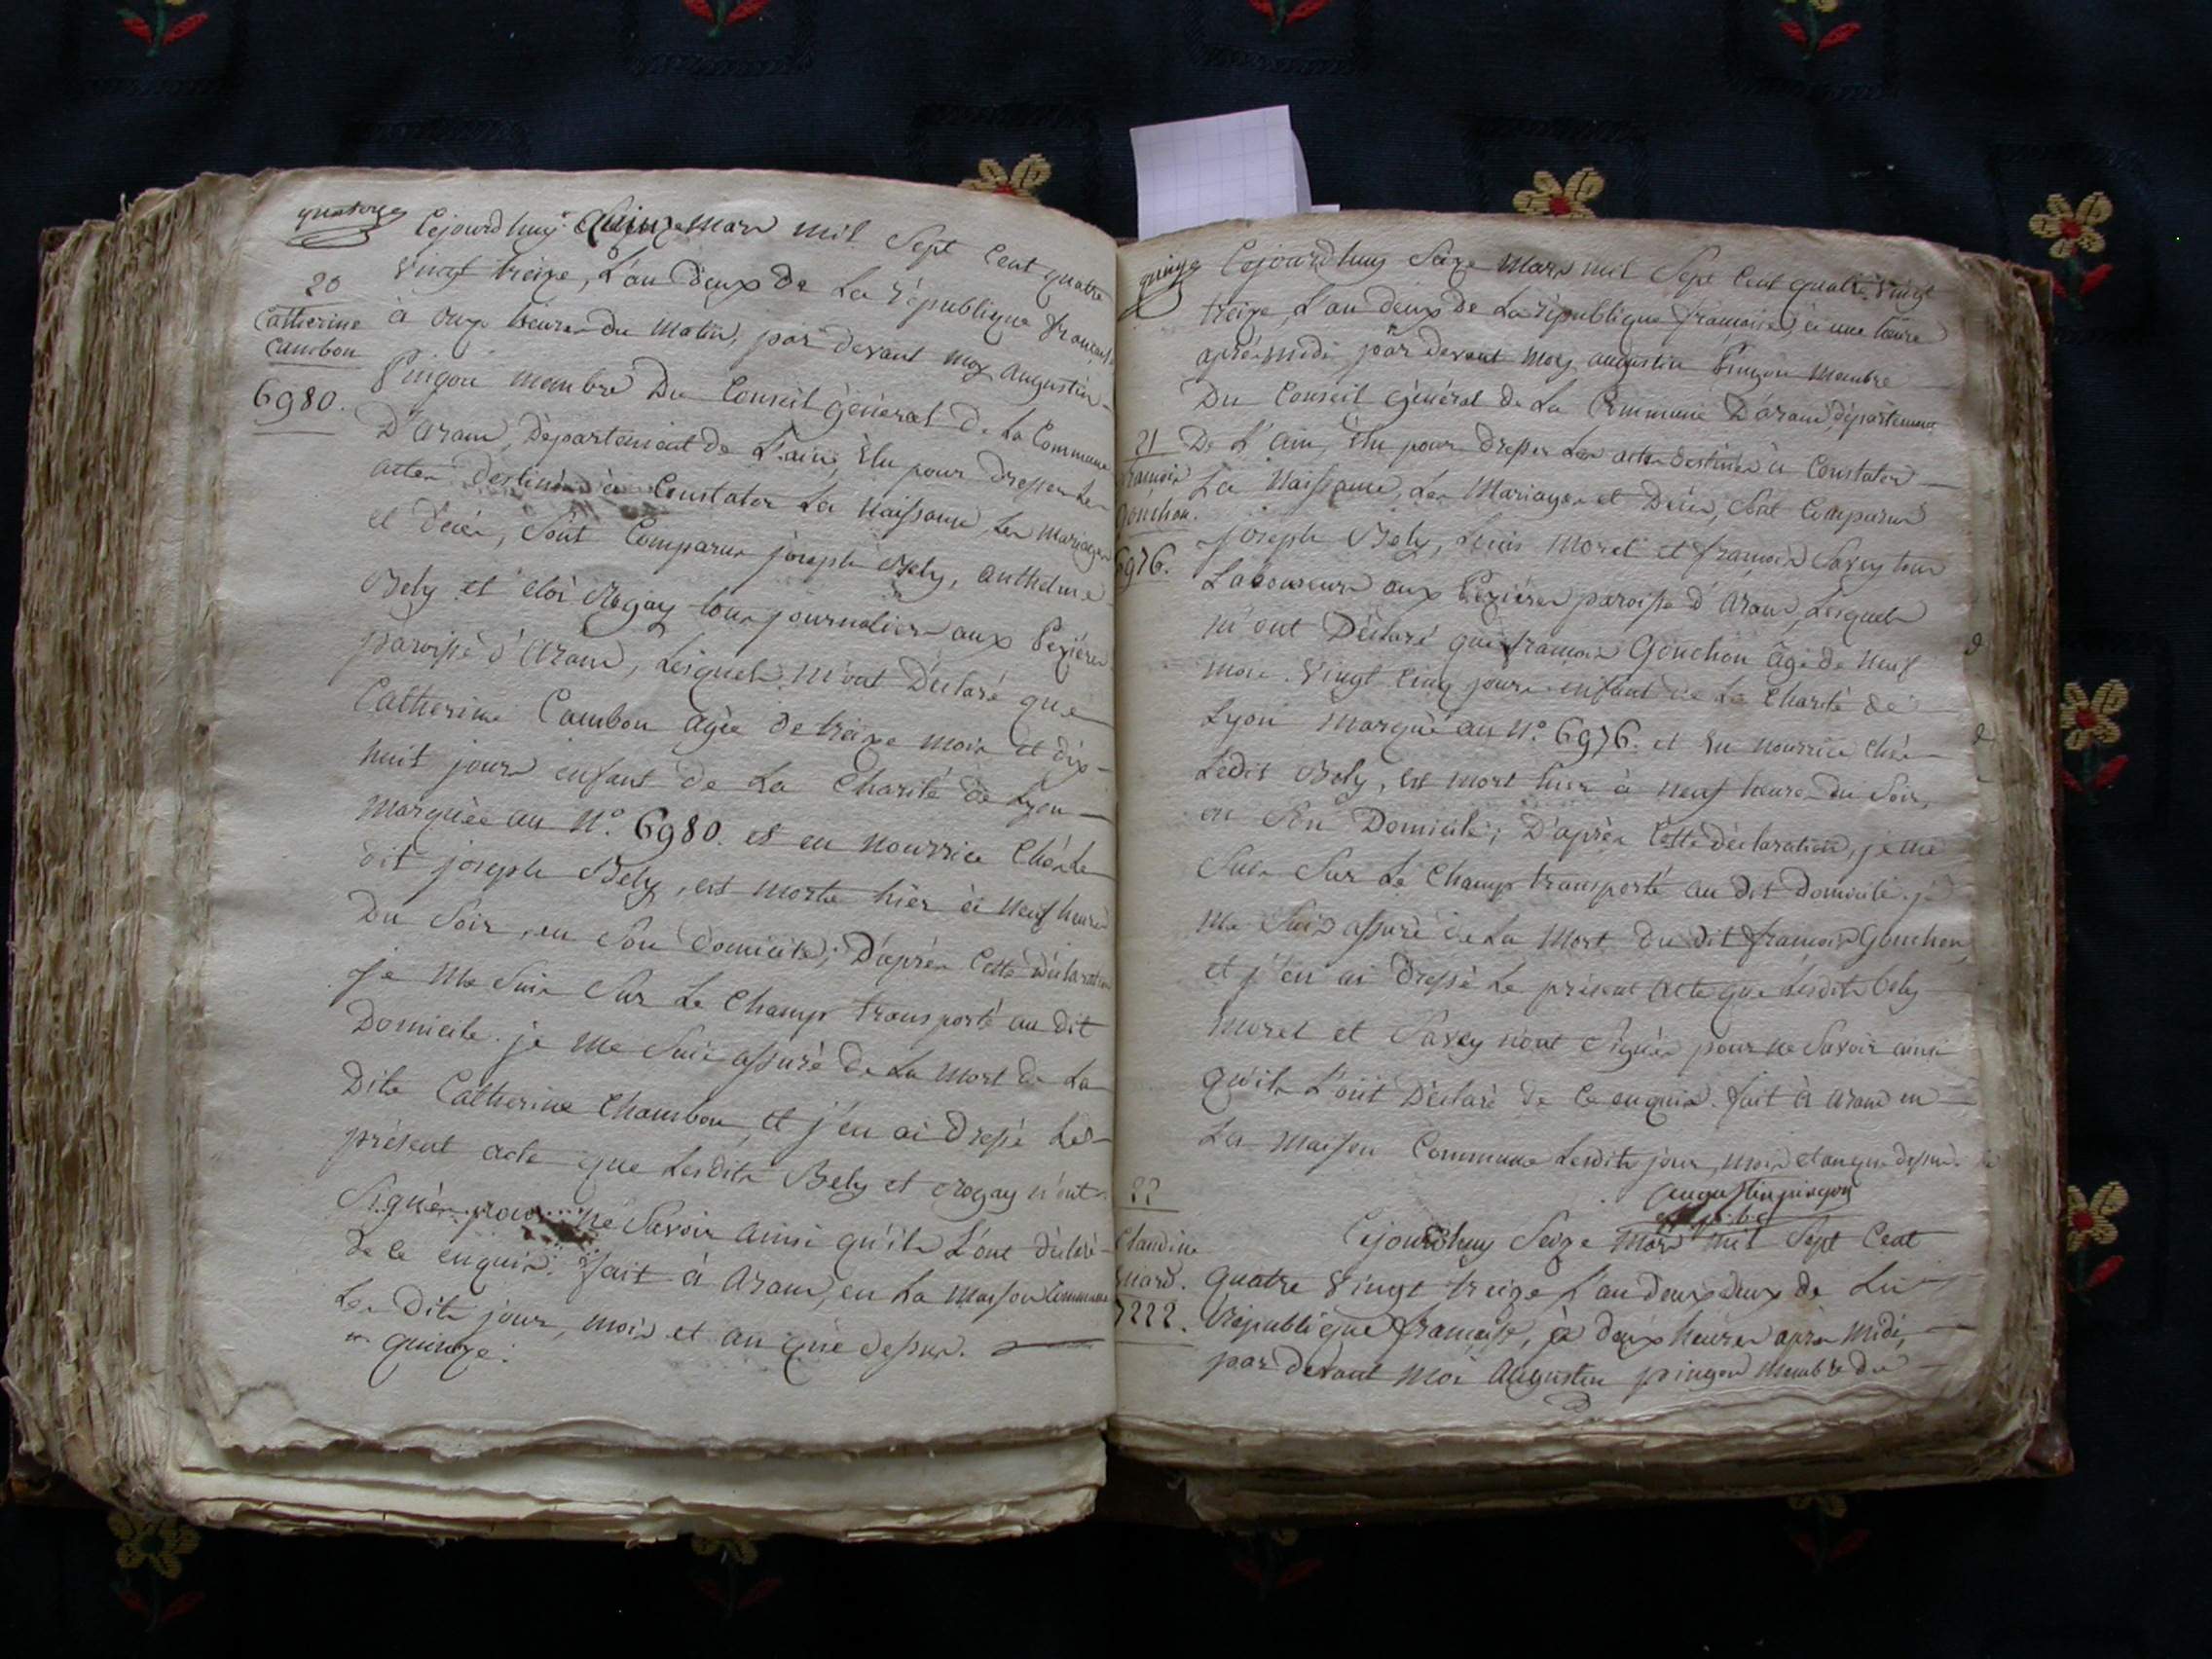 quatorze
Cejourdhuy quinze mars mil Sept Cent quatre
vingt treize, L'an deux de La république française
20
Catherine
Cambon
6980.
à onze heures du Matin, par devant moy Augustin
Pingon membre Du Conseil général de La Commune
D'aranc, Département de L'ain, Elu pour dresser Les
actes destinés à Constater La Naissance, Les mariages
et décès, Sont Comparus joseph Bely, anthelme
Bely et eloi Rogay tous journaliers aux Pezières
paroisse d'Aranc, Lesquels m'ont Déclaré que
Catherine Cambon agée de treize mois et dix
huit jours enfant de La Charité de Lyon
marquée au N.° 6980. et en nourrice Chés Le
dit joseph Bely, est morte hier à neuf heures
Du Soir, en Son domicile; D'après Cette déclaration
je me Suis Sur Le Champ transporté au dit
Domicile. je me Suis assuré de La Mort de La
Dite Catherine Chambon, et j'en ai dressé Le
présent acte que Lesdits Bely et Rogay n'ont
Signés pour ne Savoir ainsi qu'ils L'ont déclaré
de ce enquis. fait à Aranc, en La Maison Commune
Les dits jour, mois et an que dessus.
quinze.
quinze
Cejourdhuy Seize Mars mil Sept Cent quatre vingt
treize, L'an deux de La république française, à une heure
après midi par devant moy augustin Pingon Membre
Du Conseil général de La Commune D'aranc, département
21
françois
Gonchon.
6976.
De L'Ain, Elu pour dresser Les actes destinés à Constater
La Naissance, Les Mariages et Décès, Sont Comparus
joseph Bely, Louis Moret et françois Savey tous
Laboureurs aux Pezières paroisse d'Aranc, Lesquels
m'ont Déclaré que françois Gonchon agé de Neuf
mois vingt Cinq jours enfant de La Charité de
Lyon marqué au N.° 6976. et en nourrice Chés
Ledit Bely, est mort hier à neuf heures du Soir,
en Son Domicile; D'après Cette déclaration, je me
Suis Sur Le Champ transporté au dit Domicile. je
me Suis assuré de La Mort du dit françois Gonchon,
et j'en ai dressé Le présent acte que Lesdits Bely
Moret et Savey n'ont Signés pour ne Savoir ainsi
qu'ils L'ont Déclaré de Ce enquis. fait à Aranc en
La Maison Commune Lesdits jour, mois et an que dessus.
augustin pingon
22
Claudine
7222.
Cejourdhuy Seize Mars mil Sept Cent
quatre vingt treize L'an deux deux de La
République française, à deux heures après Midi,
par devant moi Augustin pingon Membre du